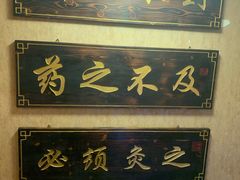 药之不及
必须灸之